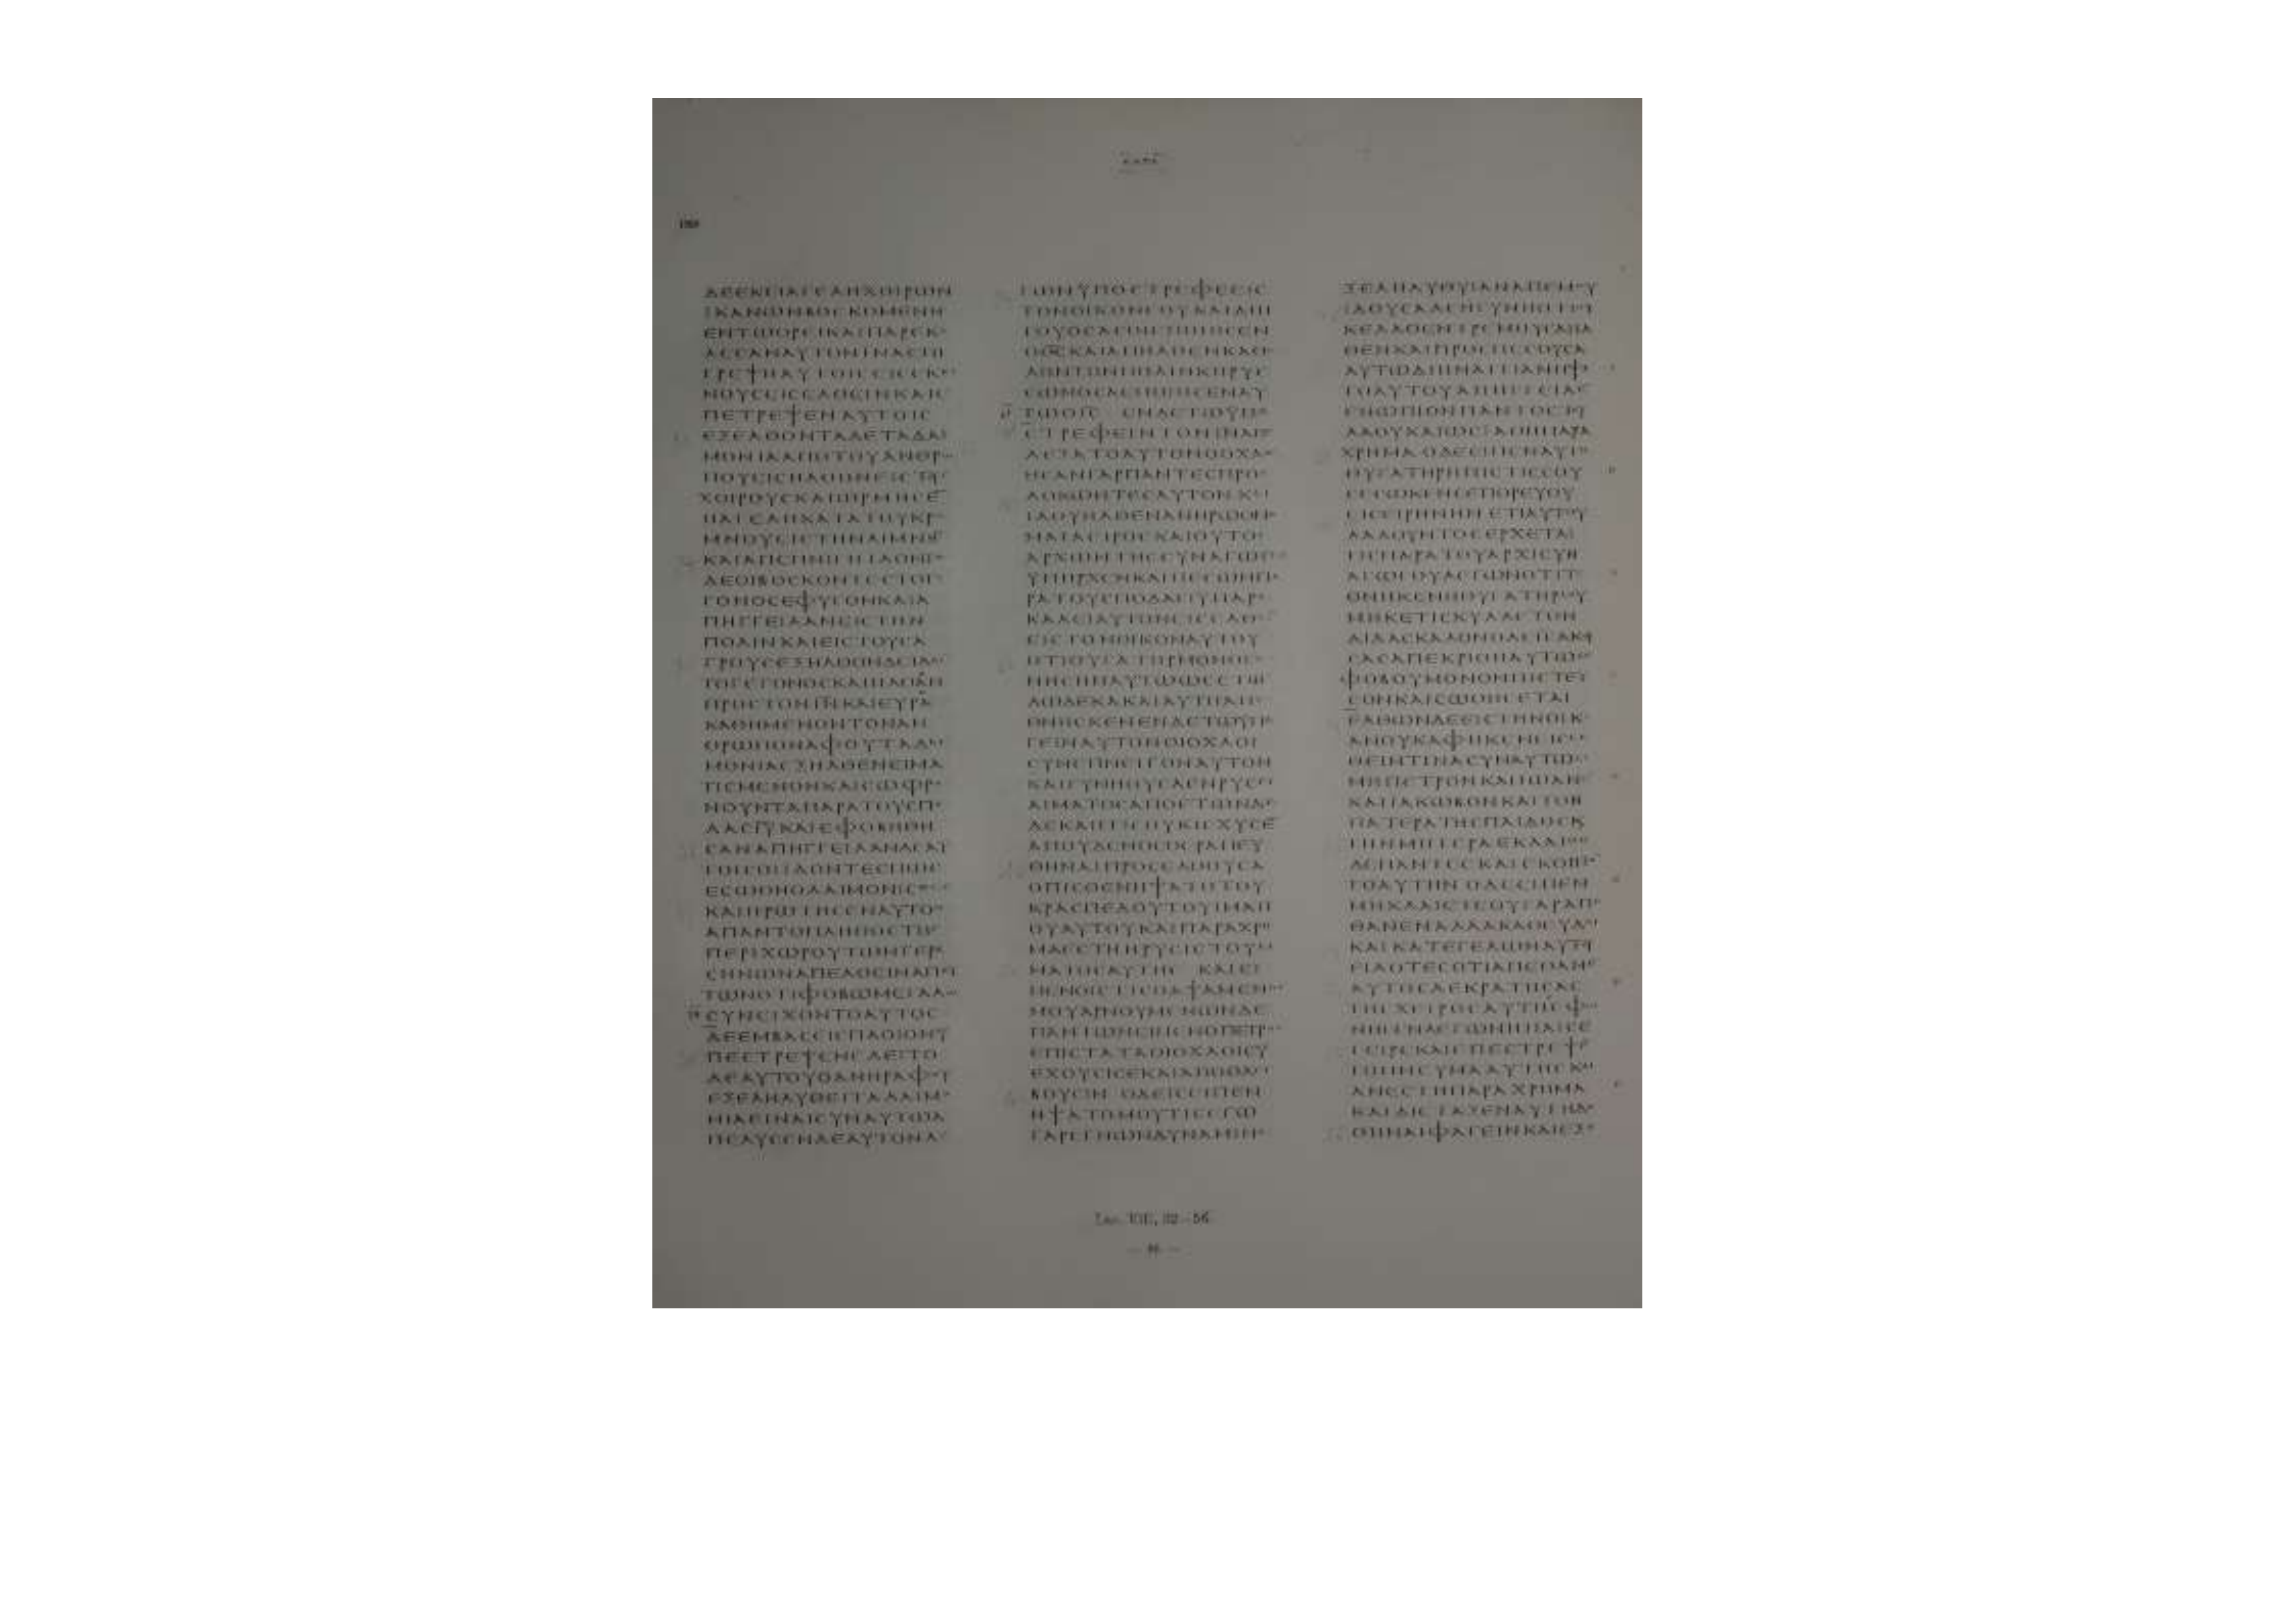 ΔΕΕΚΕΙΑΓΕΛΗΧΟΙΡΩΝ
ΙΚΑΝΩΝΒΟϹΚΟΜΕΝΗ
ΕΝΤΩΟΡΕΙΚΑΙΠΑΡΕΚΑ
ΛΕϹΑΝΑΥΤΟΝΙΝΑΕΠΙ
ΤΡΕΨΗΑΥΤΟΙϹΕΙϹΕΚΕΙ
ΝΟΥϹΕΙϹΕΛΘΕΙΝΚΑΙΕ
ΠΕΤΡΕΨΕΝΑΥΤΟΙϹ
ΕΞΕΛΘΟΝΤΑΔΕΤΑΔΑΙ
ΜΟΝΙΑΑΠΟΤΟΥΑΝΘΡΩ
ΠΟΥΕΙϹΗΛΘΟΝΕΙϹΤΟΥϹ
ΧΟΙΡΟΥϹΚΑΙΩΡΜΗϹΕ̅
ΗΑΓΕΛΗΚΑΤΑΤΟΥΚΡΗ
ΜΝΟΥΕΙϹΤΗΝΛΙΜΝΗ̅
ΚΑΙΑΠΕΠΝΙΓΗΙΔΟΝΤΕϹ
ΔΕΟΙΒΟϹΚΟΝΤΕϹΤΟΓΕ
ΓΟΝΟϹΕΦΥΓΟΝΚΑΙΑ
ΠΗΓΓΕΙΛΑΝΕΙϹΤΗΝ
ΠΟΛΙΝΚΑΙΕΙϹΤΟΥϹΑ
ΓΡΟΥϹΕΞΗΛΘΟΝΔΕΙΔΕΙΝ
ΤΟΓΕΓΟΝΟϹΚΑΙΗΛΘΑΝ
ΠΡΟϹΤΟΝΙ̅Ν̅ΚΑΙΕΥΡΑ̅
ΚΑΘΗΜΕΝΟΝΤΟΝΑΝ
ΘΡΩΠΟΝΑΦΟΥΤΑΔΑΙ
ΜΟΝΙΑΕΞΗΛΘΕΝΕΙΜΑ
ΤΙϹΜΕΝΟΝΚΑΙϹΩΦΡΟ
ΝΟΥΝΤΑΠΑΡΑΤΟΥϹΠΟ
ΔΑϹΙ̅Υ̅ΚΑΙΕΦΟΒΗΘΗ
ϹΑΝΑΠΗΓΓΕΙΛΑΝΔΕΑΥ
ΤΟΙϹΟΙΙΔΟΝΤΕϹΠΩϹ
ΕϹΩΘΗΟΔΑΙΜΟΝΙϹΘΕΙϹ
ΚΑΙΗΡΩΤΗϹΕΝΑΥΤΟΝ
ΑΠΑΝΤΟΠΛΗΘΟϹΤΗϹ
ΠΕΡΙΧΩΡΟΥΤΩΝΓΕΡΑ
ϹΗΝΩΝΑΠΕΛΘΕΙΝΑΠΑΥ
ΤΩΝΟΤΙΦΟΒΩΜΕΓΑΛΩ
ϹΥΝΕΙΧΟΝΤΟΑΥΤΟϹ
ΔΕΕΜΒΑϹΕΙϹΠΛΟΙΟΝΥ
ΠΕϹΤΡΕΨΕΝΕΔΕΙΤΟ
ΔΕΑΥΤΟΥΟΑΝΗΡΑΦΟΥ
ΕΞΕΛΗΛΥΘΕΙΤΑΔΑΙΜΟ
ΝΙΑΕΙΝΑΙϹΥΝΑΥΤΩΑ
ΠΕΛΥϹΕΝΔΕΑΥΤΟΝΛΕ
ΓΩΝΥΠΟϹΤΡΕΦΕΕΙϹ
ΤΟΝΟΙΚΟΝϹΟΥΚΑΙΔΙΗ
ΓΟΥΟϹΑϹΟΙΕΠΟΙΗϹΕΝ
ΟΘ̅Ϲ̅ΚΑΙΑΠΗΛΘΕΝΚΑΘΟ
ΛΗΝΤΗΝΠΟΛΙΝΚΗΡΥϹ
ϹΩΝΟϹΑΕΠΟΙΗϹΕΝΑΥ
ΤΩΟΙ̅Ϲ̅ ΕΝΔΕΤΩΥΠΟ
ϹΤΡΕΦΕΙΝΤΟΝΙ̅Ν̅ΑΠΕ
ΔΕΞΑΤΟΑΥΤΟΝΟΟΧΛΟϹ
ΗϹΑΝΓΑΡΠΑΝΤΕϹΠΡΟϹ
ΔΟΚΩΝΤΕϹΑΥΤΟΝΚΑΙ
ΙΔΟΥΗΛΘΕΝΑΝΗΡΩΟΝΟ
ΜΑΙΑΕΙΡΟϹΚΑΙΟΥΤΟϹ
ΑΡΧΩΝΤΗϹϹΥΝΑΓΩΓΗϹ
ΥΠΗΡΧΕΝΚΑΙΠΕϹΩΝΠΑ
ΡΑΤΟΥϹΠΟΔΑϹΙΥΠΑΡΕ
ΚΑΛΕΙΑΥΤΟΝΕΙϹΕΛΘΕΙ̅
ΕΙϹΤΟΝΟΙΚΟΝΑΥΤΟΥ
ΟΤΙΘΥΓΑΤΗΡΜΟΝΟΓΕ
ΝΗϹΗΝΑΥΤΩΩϹΕΤΩ
ΔΩΔΕΚΑΚΑΙΑΥΤΗΑΠΕ
ΘΝΗϹΚΕΝΕΝΔΕΤΩΥΠΑ
ΓΕΙΝΑΥΤΟΝΟΙΟΧΛΟΙ
ϹΥΝΕΠΝΕΙΓΟΝΑΥΤΟΝ
ΚΑΙΓΥΝΗΟΥϹΑΕΝΡΥϹΕΙ
ΑΙΜΑΤΟϹΑΠΟΕΤΩΝΔΩ
ΔΕΚΑΗΤΙϹΟΥΚΙϹΧΥϹΕ̅
ΑΠΟΥΔΕΝΟϹΘΕΡΑΠΕΥ
ΘΗΝΑΙΠΡΟϹΕΛΘΟΥϹΑ
ΟΠΙϹΘΕΝΗΨΑΤΟΤΟΥ
ΚΡΑϹΠΕΔΟΥΤΟΥΙΜΑΤΙ
ΟΥΑΥΤΟΥΚΑΙΠΑΡΑΧΡΗ
ΜΑΕϹΤΗΗΡΥϹΙϹΤΟΥΑΙ
ΜΑΤΟϹΑΥΤΗϹ ΚΑΙΕΙ
ΠΕΝΟΙ̅Ϲ̅ΤΙϹΟΑΨΑΜΕΝΟϹ
ΜΟΥΑΡΝΟΥΜΕΝΩΝΔΕ
ΠΑΝΤΩΝΕΙΠΕΝΟΠΕΤΡΟϹ
ΕΠΙϹΤΑΤΑΟΙΟΧΛΟΙϹΥ
ΕΧΟΥϹΙϹΕΚΑΙΑΠΟΘΛΙ
ΒΟΥϹΙΝ ΟΔΕΙ̅Ϲ̅ΕΙΠΕΝ
ΗΨΑΤΟΜΟΥΤΙϹΕΓΩ
ΓΑΡΕΓΝΩΝΔΥΝΑΜΙΝΕ
ΞΕΛΗΛΥΘΥΙΑΝΑΠΕΜΟΥ
ΙΔΟΥϹΑΔΕΗΓΥΝΗΟΤΙΟΥ
ΚΕΛΑΘΕΝΤΡΕΜΟΥϹΑΗΛ
ΘΕΝΚΑΙΠΡΟϹΠΕϹΟΥϹΑ
ΑΥΤΩΔΙΗΝΑΙΤΙΑΝΗΨΑ
ΤΟΑΥΤΟΥΑΠΗΓΓΕΙΛΕ̅
ΕΝΩΠΙΟΝΠΑΝΤΟϹΤΟΥ
ΛΑΟΥΚΑΙΩϹΙΑΘΗΠΑΡΑ
ΧΡΗΜΑ ΟΔΕΕΙΠΕΝΑΥΤΗ
ΘΥΓΑΤΗΡΗΠΙϹΤΙϹϹΟΥ
ϹΕϹΩΚΕΝϹΕΠΟΡΕΥΟΥ
ΕΙϹΕΙΡΗΝΗΝ ΕΤΙΑΥΤΟΥ
ΛΑΛΟΥΝΤΟϹΕΡΧΕΤΑΙ
ΤΙϹΠΑΡΑΤΟΥΑΡΧΙϹΥΝ
ΑΓΩΓΟΥΛΕΓΩΝΟΤΙΤΕ
ΘΝΗΚΕΝΗΘΥΓΑΤΗΡϹΟΥ
ΜΗΚΕΤΙϹΚΥΛΛΕΤΟΝ
ΔΙΔΑϹΚΑΛΟΝΟΔΕΙ̅Ϲ̅ΑΚΟΥ
ϹΑϹΑΠΕΚΡΙΘΗΑΥΤΩΜΗ
ΦΟΒΟΥΜΟΝΟΝΠΙϹΤΕΥ
ϹΟΝΚΑΙϹΩΘΗϹΕΤΑΙ
ΕΛΘΩΝΔΕΕΙϹΤΗΝΟΙΚΙ
ΑΝΟΥΚΑΦΗΚΕΝΕΙϹΕΛ
ΘΕΙΝΤΙΝΑϹΥΝΑΥΤΩΕΙ
ΜΗΠΕΤΡΟΝΚΑΙΙΩΑΝΗ̅
ΚΑΙΙΑΚΩΒΟΝΚΑΙΤΟΝ
ΠΑΤΕΡΑΤΗϹΠΑΙΔΟϹΚΑΙ
ΤΗΝΜΗΤΕΡΑΕΚΛΑΙΟΝ
ΔΕΠΑΝΤΕϹΚΑΙΕΚΟΠΤΟ̅
ΤΟΑΥΤΗΝ ΟΔΕΕΙΠΕΝ
ΜΗΚΛΑΙΕΤΕΟΥΓΑΡΑΠΕ
ΘΑΝΕΝΑΛΛΑΚΑΘΕΥΔΕΙ
ΚΑΙΚΑΤΕΓΕΛΩΝΑΥΤΗϹ
ΕΙΔΟΤΕϹΟΤΙΑΠΕΘΑΝΕ̅
ΑΥΤΟϹΔΕΚΡΑΤΗϹΑϹ
ΤΗϹΧΕΙΡΟϹΑΥΤΗϹΕΦΩ
ΝΗϹΕΝΛΕΓΩΝΗΠΑΙϹΕ
ΓΕΙΡΕΚΑΙΕΠΕϹΤΡΕΨΕ
ΤΟΠΝΕΥΜΑΑΥΤΗϹΚΑΙ
ΑΝΕϹΤΗΠΑΡΑΧΡΗΜΑ
ΚΑΙΔΙΕΤΑΞΕΝΑΥΤΗΔΟ
ΘΗΝΑΙΦΑΓΕΙΝΚΑΙΕΞΕ